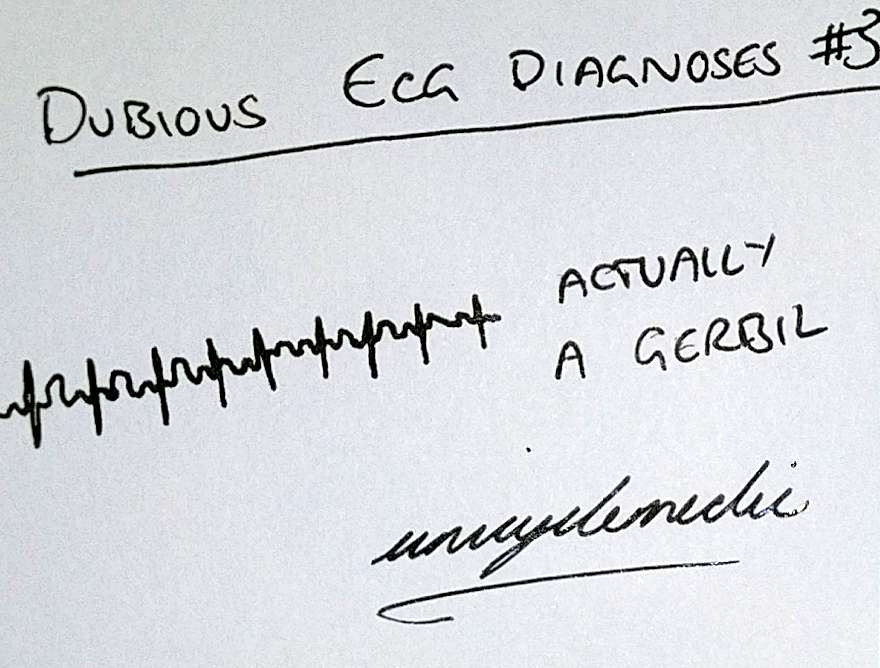 DUBIOUS ECG DIAGNOSES #3
ACTUALLY
A GERBIL
unicyclemedic